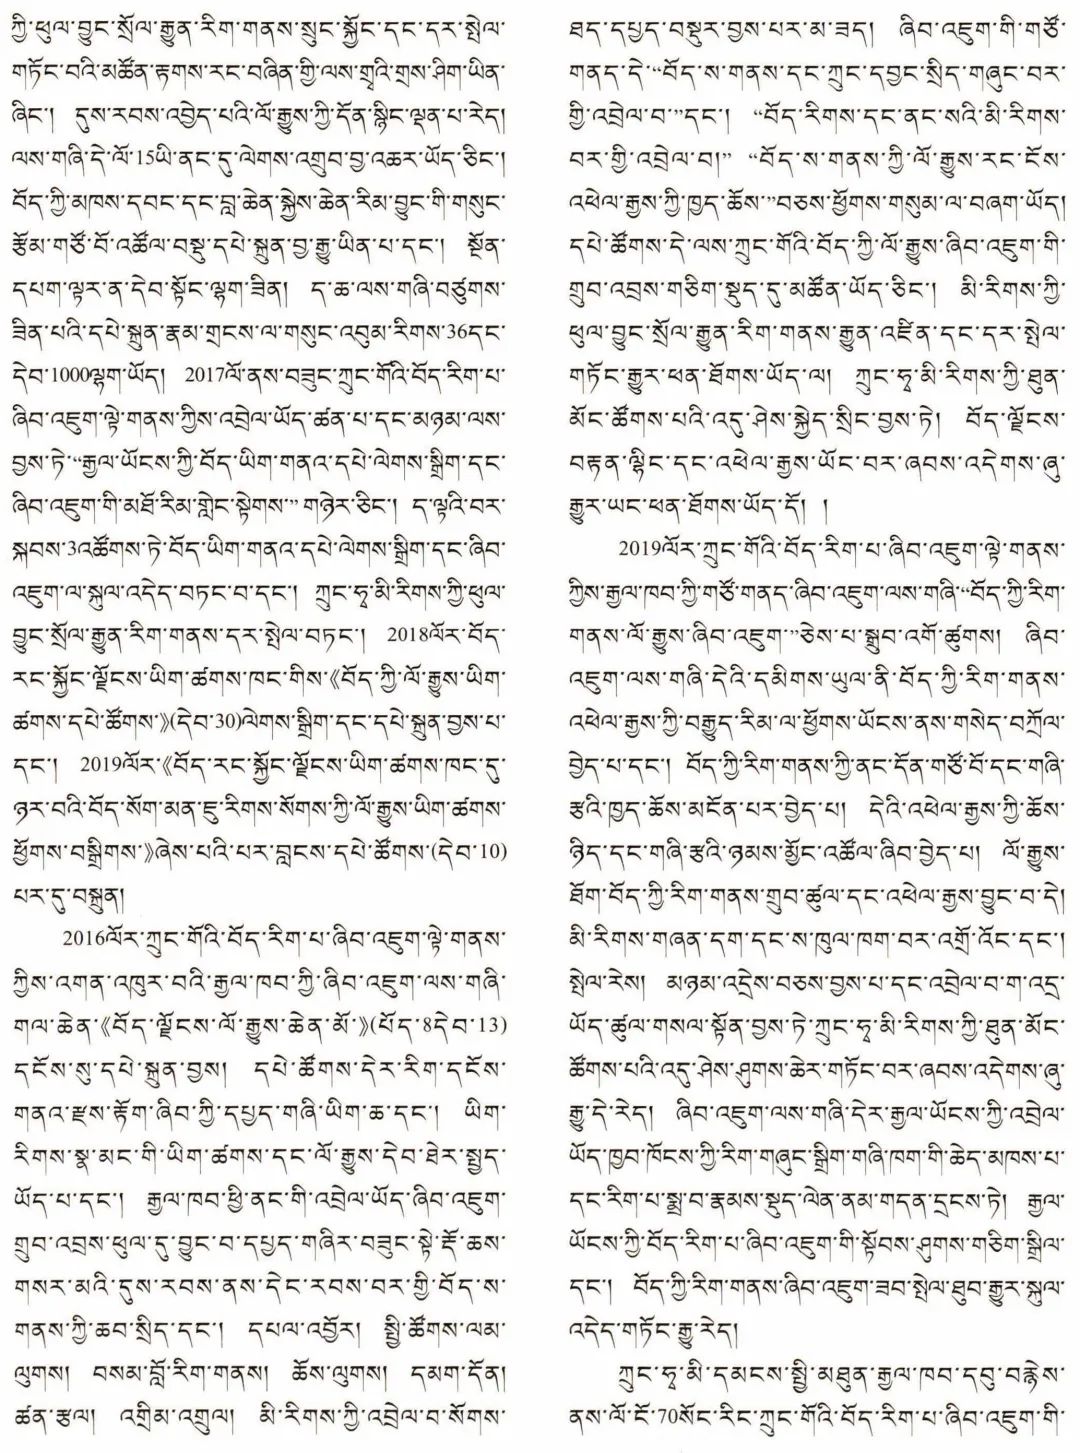 ཀྱི་ཕུལ་བྱུང་སྲོལ་རྒྱུན་རིག་གནས་སྲུང་སྐྱོང་དང་དར་སྤེལ་
གཏོང་བའི་མཚོན་རྟགས་རང་བཞིན་གྱི་ལས་གྲྭའི་གྲས་ཤིག་ཡིན་
ཞིང་། དུས་རབས་འབྱེད་པའི་ལོ་རྒྱུས་ཀྱི་དོན་སྙིང་ལྡན་པ་རེད།
ལས་གཞི་དེ་ལོ་15ཡི་ནང་དུ་ལེགས་འགྲུབ་བྱ་འཆར་ཡོད་ཅིང་།
བོད་ཀྱི་མཁས་དབང་དང་བླ་ཆེན་སྐྱེས་ཆེན་རིམ་བྱུང་གི་གསུང་
རྩོམ་གཙོ་བོ་འཚོལ་བསྡུ་དཔེ་སྐྲུན་བྱ་རྒྱུ་ཡིན་པ་དང་། སྔོན་
དཔག་ལྟར་ན་དེབ་སྟོང་ལྷག་ཟིན། ད་ཆ་ལས་གཞི་བཙུགས་
ཟིན་པའི་དཔེ་སྐྲུན་རྣམ་གྲངས་ལ་གསུང་འབུམ་རིགས་36དང་
དེབ་1000ལྷག་ཡོད། 2017ལོ་ནས་བཟུང་ཀྲུང་གོའི་བོད་རིག་པ་
ཞིབ་འཇུག་ལྟེ་གནས་ཀྱིས་འབྲེལ་ཡོད་ཚན་པ་དང་མཉམ་ལས་
བྱས་ཏེ་“རྒྱལ་ཡོངས་ཀྱི་བོད་ཡིག་གནའ་དཔེ་ལེགས་སྒྲིག་དང་
ཞིབ་འཇུག་གི་མཐོ་རིམ་གླེང་སྟེགས་” གཉེར་ཅིང་། ད་ལྟའི་བར་
སྐབས་3འཚོགས་ཏེ་བོད་ཡིག་གནའ་དཔེ་ལེགས་སྒྲིག་དང་ཞིབ་
འཇུག་ལ་སྐུལ་འདེད་བཏང་བ་དང་། ཀྲུང་ཧྭ་མི་རིགས་ཀྱི་ཕུལ་
བྱུང་སྲོལ་རྒྱུན་རིག་གནས་དར་སྤེལ་བཏང་། 2018ལོར་བོད་
རང་སྐྱོང་ལྗོངས་ཡིག་ཚགས་ཁང་གིས་《བོད་ཀྱི་ལོ་རྒྱུས་ཡིག་
ཚགས་དཔེ་ཚོགས་》(དེབ་30)ལེགས་སྒྲིག་དང་དཔེ་སྐྲུན་བྱས་པ་
དང་། 2019ལོར་《བོད་རང་སྐྱོང་ལྗོངས་ཡིག་ཚགས་ཁང་དུ་
ཉར་བའི་བོད་སོག་མན་ཇུ་རིགས་སོགས་ཀྱི་ལོ་རྒྱུས་ཡིག་ཚགས་
ཕྱོགས་བསྒྲིགས་》ཞེས་པའི་པར་བླངས་དཔེ་ཚོགས་(དེབ་10)
པར་དུ་བསྐྲུན།
2016ལོར་ཀྲུང་གོའི་བོད་རིག་པ་ཞིབ་འཇུག་ལྟེ་གནས་
ཀྱིས་འགན་འཁུར་བའི་རྒྱལ་ཁབ་ཀྱི་ཞིབ་འཇུག་ལས་གཞི་
གལ་ཆེན་《བོད་ལྗོངས་ལོ་རྒྱུས་ཆེན་མོ་》(པོད་8དེབ་13)
དངོས་སུ་དཔེ་སྐྲུན་བྱས། དཔེ་ཚོགས་དེར་རིག་དངོས་
གནའ་རྫས་རྟོག་ཞིབ་ཀྱི་དཔྱད་གཞི་ཡིག་ཆ་དང་། ཡིག་
རིགས་སྣ་མང་གི་ཡིག་ཚགས་དང་ལོ་རྒྱུས་དེབ་ཐེར་སྤྱད་
ཡོད་པ་དང་། རྒྱལ་ཁབ་ཕྱི་ནང་གི་འབྲེལ་ཡོད་ཞིབ་འཇུག་
གྲུབ་འབྲས་ཕུལ་དུ་བྱུང་བ་དཔྱད་གཞིར་བཟུང་སྟེ་རྡོ་ཆས་
གསར་མའི་དུས་རབས་ནས་དེང་རབས་བར་གྱི་བོད་ས་
གནས་ཀྱི་ཆབ་སྲིད་དང་། དཔལ་འབྱོར། སྤྱི་ཚོགས་ལམ་
ལུགས། བསམ་བློ་རིག་གནས། ཆོས་ལུགས། དམག་དོན།
ཚན་རྩལ། འགྲིམ་འགྲུལ། མི་རིགས་ཀྱི་འབྲེལ་བ་སོགས་
ཐད་དཔྱད་བསྡུར་བྱས་པར་མ་ཟད། ཞིབ་འཇུག་གི་གཙོ་
གནད་དེ་“བོད་ས་གནས་དང་ཀྲུང་དབྱང་སྲིད་གཞུང་བར་
གྱི་འབྲེལ་བ་”དང་། “བོད་རིགས་དང་ནང་སའི་མི་རིགས་
བར་གྱི་འབྲེལ་བ།” “བོད་ས་གནས་ཀྱི་ལོ་རྒྱུས་རང་ངོས་
འཕེལ་རྒྱས་ཀྱི་ཁྱད་ཆོས་”བཅས་ཕྱོགས་གསུམ་ལ་བཞག་ཡོད།
དཔེ་ཚོགས་དེ་ལས་ཀྲུང་གོའི་བོད་ཀྱི་ལོ་རྒྱུས་ཞིབ་འཇུག་གི་
གྲུབ་འབྲས་གཅིག་སྡུད་དུ་མཚོན་ཡོད་ཅིང་། མི་རིགས་ཀྱི་
ཕུལ་བྱུང་སྲོལ་རྒྱུན་རིག་གནས་རྒྱུན་འཛིན་དང་དར་སྤེལ་
གཏོང་རྒྱུར་ཕན་ཐོགས་ཡོད་ལ། ཀྲུང་ཧྭ་མི་རིགས་ཀྱི་ཐུན་
མོང་ཚོགས་པའི་འདུ་ཤེས་སྐྱེད་སྲིང་བྱས་ཏེ། བོད་ལྗོངས་
བརྟན་ལྷིང་དང་འཕེལ་རྒྱས་ཡོང་བར་ཞབས་འདེགས་ཞུ་
རྒྱུར་ཡང་ཕན་ཐོགས་ཡོད་དོ། །
2019ལོར་ཀྲུང་གོའི་བོད་རིག་པ་ཞིབ་འཇུག་ལྟེ་གནས་
ཀྱིས་རྒྱལ་ཁབ་ཀྱི་གཙོ་གནད་ཞིབ་འཇུག་ལས་གཞི་“བོད་ཀྱི་རིག་
གནས་ལོ་རྒྱུས་ཞིབ་འཇུག་”ཅེས་པ་སྒྲུབ་འགོ་ཚུགས། ཞིབ་
འཇུག་ལས་གཞི་དེའི་དམིགས་ཡུལ་ནི་བོད་ཀྱི་རིག་གནས་
འཕེལ་རྒྱས་ཀྱི་བརྒྱུད་རིམ་ལ་ཕྱོགས་ཡོངས་ནས་གསེད་བཀྲོལ་
བྱེད་པ་དང་། བོད་ཀྱི་རིག་གནས་ཀྱི་ནང་དོན་གཙོ་བོ་དང་གཞི་
རྩའི་ཁྱད་ཆོས་མངོན་པར་བྱེད་པ། དེའི་འཕེལ་རྒྱས་ཀྱི་ཆོས་
ཉིད་དང་གཞི་རྩའི་ཉམས་མྱོང་འཚོལ་ཞིབ་བྱེད་པ། ལོ་རྒྱུས་
ཐོག་བོད་ཀྱི་རིག་གནས་གྲུབ་ཚུལ་དང་འཕེལ་རྒྱས་བྱུང་བ་དེ།
མི་རིགས་གཞན་དག་དང་ས་ཁུལ་ཁག་བར་འགྲོ་འོང་དང་།
སྤེལ་རེས། མཉམ་འདྲེས་བཅས་བྱས་པ་དང་འབྲེལ་བ་ག་འདྲ་
ཡོད་ཚུལ་གསལ་སྟོན་བྱས་ཏེ་ཀྲུང་ཧྭ་མི་རིགས་ཀྱི་ཐུན་མོང་
ཚོགས་པའི་འདུ་ཤེས་ཤུགས་ཆེར་གཏོང་བར་ཞབས་འདེགས་ཞུ་
རྒྱུ་དེ་རེད། ཞིབ་འཇུག་ལས་གཞི་དེར་རྒྱལ་ཡོངས་ཀྱི་འབྲེལ་
ཡོད་ཁྱབ་ཁོངས་ཀྱི་རིག་གཞུང་སྒྲིག་གཞི་ཁག་གི་ཆེད་མཁས་པ་
དང་རིག་པ་སྨྲ་བ་རྣམས་སྡུད་ལེན་ནམ་གདན་དྲངས་ཏེ། རྒྱལ་
ཡོངས་ཀྱི་བོད་རིག་པ་ཞིབ་འཇུག་གི་སྟོབས་ཤུགས་གཅིག་སྒྲིལ་
དང་། བོད་ཀྱི་རིག་གནས་ཞིབ་འཇུག་ཟབ་སྤེལ་ཐུབ་རྒྱུར་སྐུལ་
འདེད་གཏོང་རྒྱུ་རེད།
ཀྲུང་ཧྭ་མི་དམངས་སྤྱི་མཐུན་རྒྱལ་ཁབ་དབུ་བརྙེས་
ནས་ལོ་ངོ་70སོང་རིང་ཀྲུང་གོའི་བོད་རིག་པ་ཞིབ་འཇུག་གི་